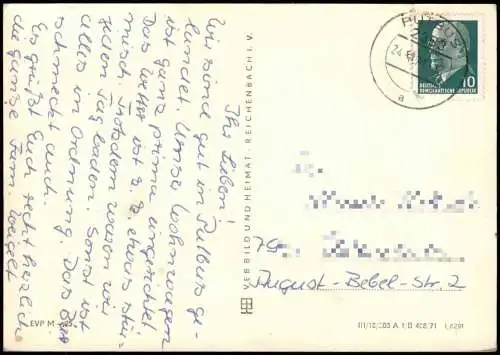 Ihr Lieben!
Wir sind gut in Putbus ge-
landet. Unser Wohnwagen
ist ganz prima eingerichtet.
Das Wetter ist z. Z. etwas stür-
misch. Trotzdem waren wir
jeden Tag baden. Sonst ist
alles in Ordnung. Das Bier
schmeckt auch.
Es grüßt Euch recht herzlich
die ganze Fam. Weigelt
EVP M
VEB BILD UND HEIMAT · REICHENBACH I. V.
PUTBUS
24.
a
10
DEUTSCHE
DEMOKRATISCHE REPUBLIK
August-Bebel-Str. 2